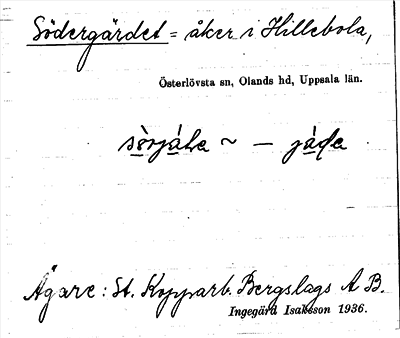 Södergärdet = åker i Hillebola,
Österlövsta sn, Olands hd, Uppsala län.
~ —
Ägare: St. Kopparb. Bergslags A B.
Ingegärd Isaksson 1936.